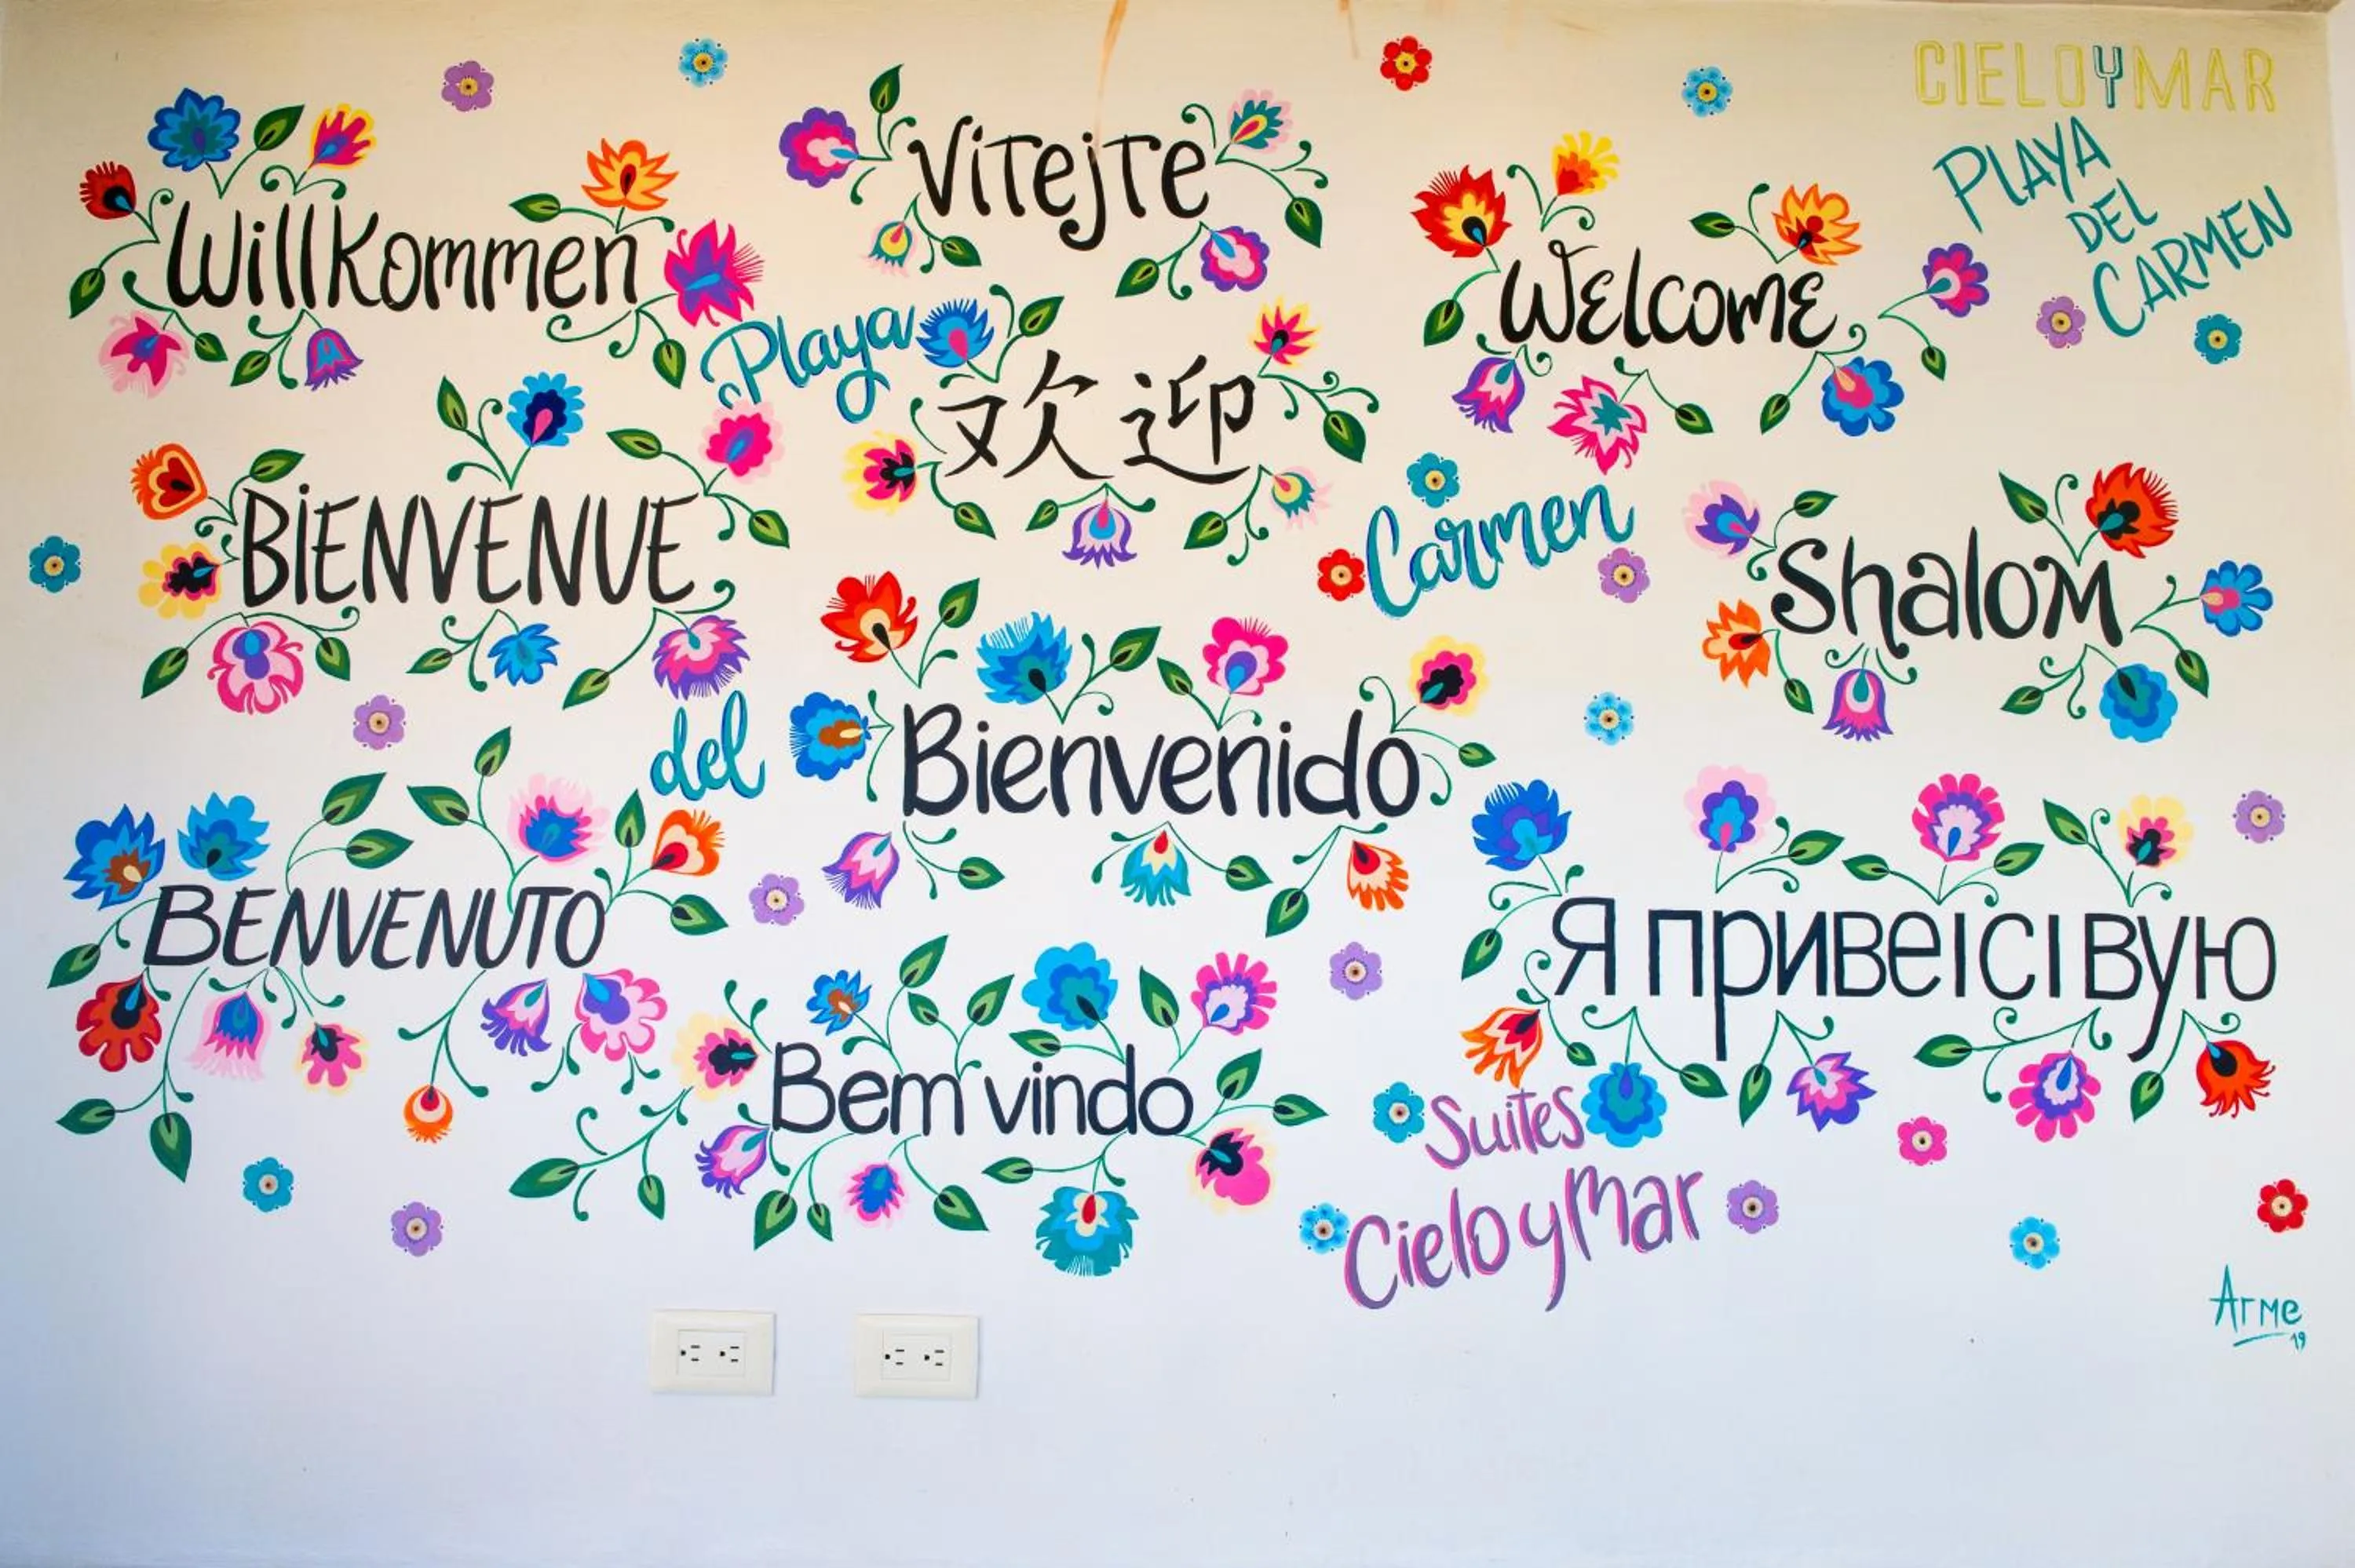 CIELOYMAR
PLAYA
DEL
CARMEN
Willkommen
Vitejte
Welcome
Playa
欢迎
BIENVENUE
Carmen
Shalom
del
Bienvenido
BENVENUTO
Я привеıсıвую
Bem vindo
Suites
Cielo y Mar
Arme
19